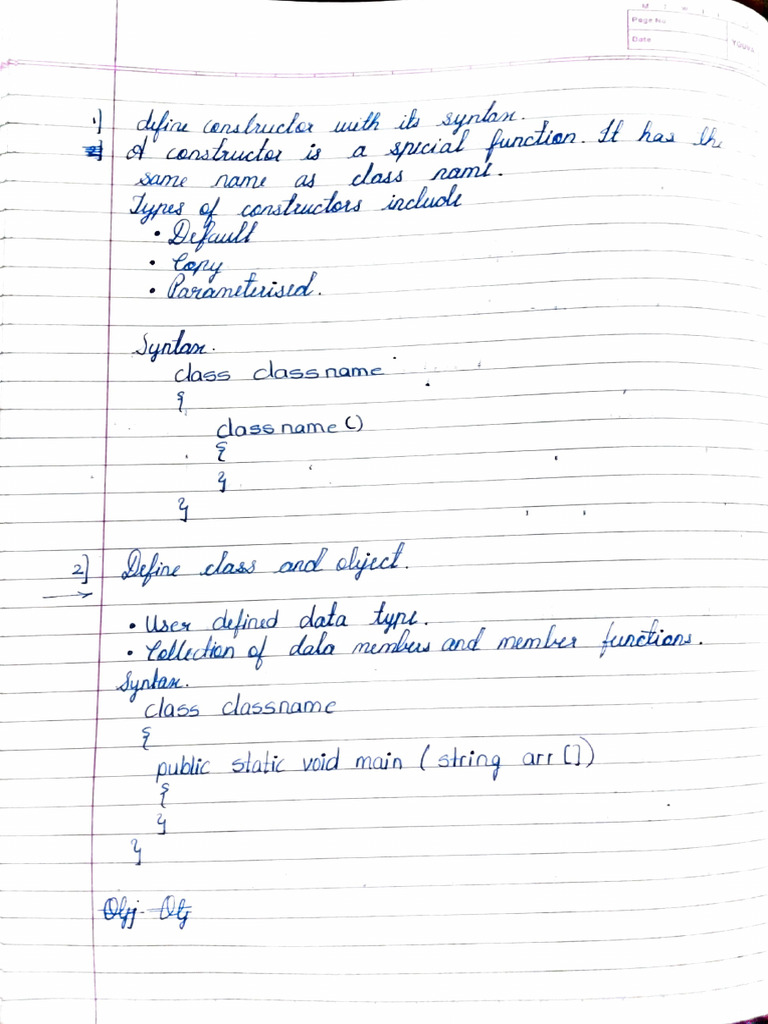 Page No
Date
YOUVA
1] define constructor with its syntax.
A constructor is a special function. It has the
same name as class name.
Types of constructors include
• Default
• Copy
• Parameterised.
Syntax.
class classname
{
classname ()
{
}
}
2] Define class and object.
→
• User defined data type.
• Collection of data members and member functions.
Syntax.
class classname
{
public static void main ( string arr [])
{
}
}
Obj Obj